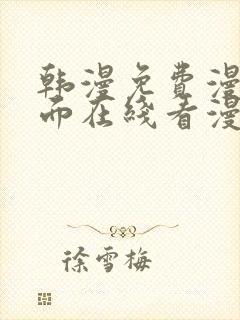 韩漫免费漫
而在线看漫
徐雪梅